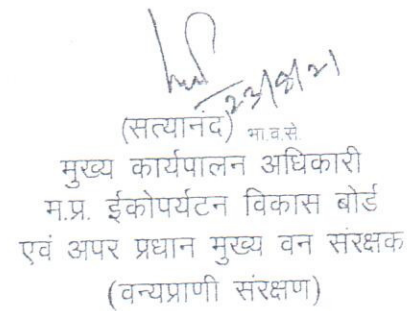 23/8/21
(सत्यानंद) भा.व.से.
मुख्य कार्यपालन अधिकारी
म.प्र. ईकोपर्यटन विकास बोर्ड
एवं अपर प्रधान मुख्य वन संरक्षक
(वन्यप्राणी संरक्षण)